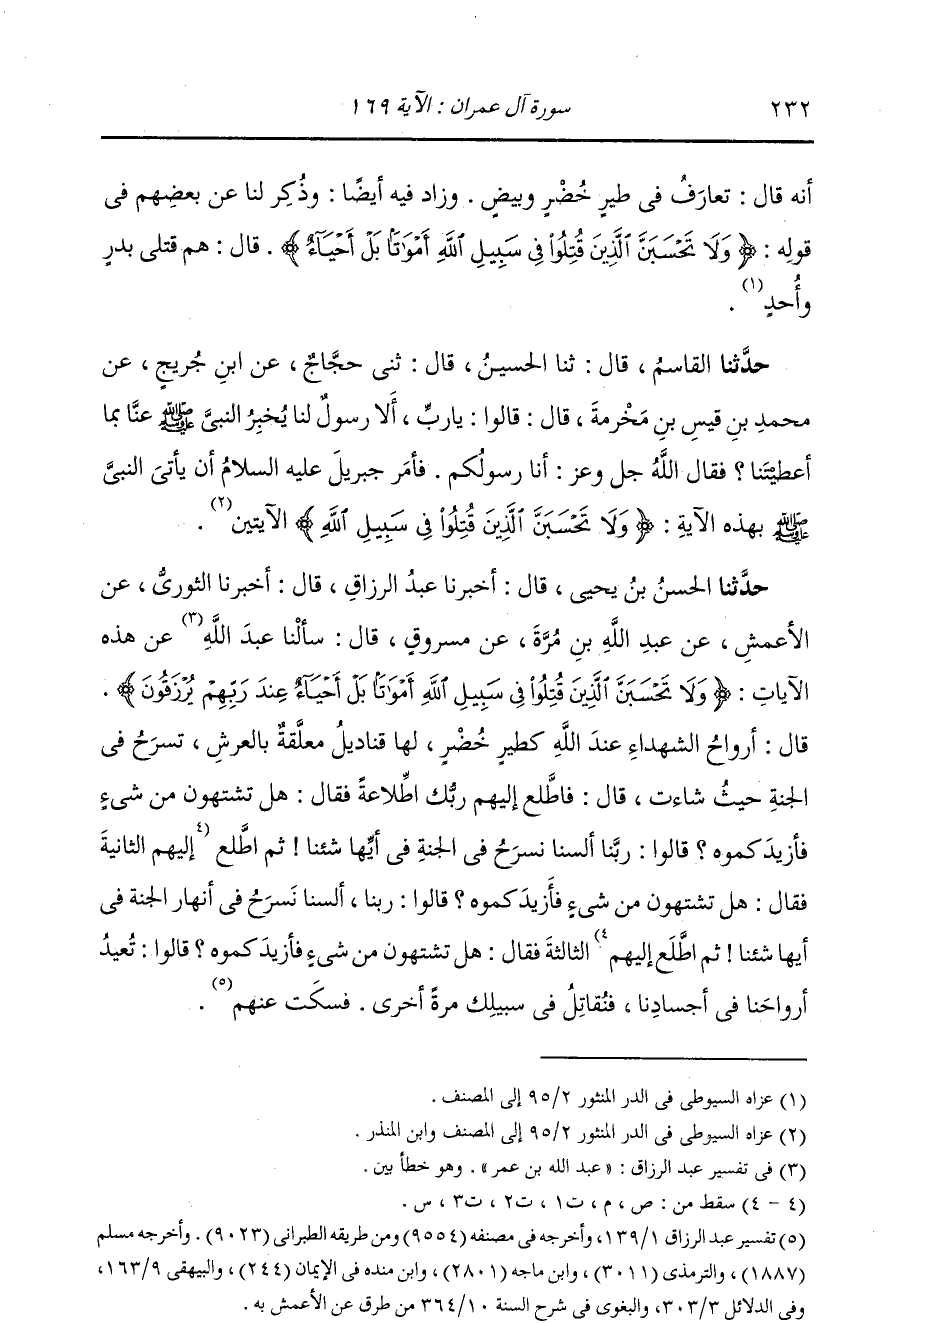 ٢٣٢ سورة آل عمران : الآية ١٦٩
أنه قال : تعارَفُ فى طيرٍ خُضْرٍ وبيضٍ . وزاد فيه أيضًا : وذُكِر لنا عن بعضِهم فى
قولِه : ﴿ وَلَا تَحْسَبَنَّ ٱلَّذِينَ قُتِلُوا۟ فِى سَبِيلِ ٱللَّهِ أَمْوَٰتًۢا بَلْ أَحْيَآءٌ ﴾ . قال : هم قتلى بدرٍ
وأُحدٍ(١) .
حدَّثنا القاسمُ ، قال : ثنا الحسينُ ، قال : ثنى حجَّاجٌ ، عن ابنِ جُريجٍ ، عن
محمدِ بنِ قيسِ بنِ مَخْرمةَ ، قال : قالوا : ياربِّ ، أَلا رسولٌ لنا يُخبِرُ النبىَّ ﷺ عنَّا بما
أعطيْتَنا ؟ فقال اللَّهُ جل وعز : أنا رسولُكم . فأمَر جبريلَ عليه السلامُ أن يأتىَ النبىَّ
ﷺ بهذه الآيةِ : ﴿ وَلَا تَحْسَبَنَّ ٱلَّذِينَ قُتِلُوا۟ فِى سَبِيلِ ٱللَّهِ ﴾ الآيتين(٢) .
حدَّثنا الحسنُ بنُ يحيى ، قال : أخبرنا عبدُ الرزاقِ ، قال : أخبرنا الثورىُّ ، عن
الأعمشِ ، عن عبدِ اللَّهِ بنِ مُرَّةَ ، عن مسروقٍ ، قال : سألْنا عبدَ اللَّهِ(٣) عن هذه
الآياتِ : ﴿ وَلَا تَحْسَبَنَّ ٱلَّذِينَ قُتِلُوا۟ فِى سَبِيلِ ٱللَّهِ أَمْوَٰتًۢا بَلْ أَحْيَآءٌ عِندَ رَبِّهِمْ يُرْزَقُونَ ﴾ .
قال : أرواحُ الشهداءِ عندَ اللَّهِ كطيرٍ خُضْرٍ ، لها قناديلُ معلَّقةٌ بالعرشِ ، تسرَحُ فى
الجنةِ حيثُ شاءت ، قال : فاطَّلع إليهم ربُّك اطِّلاعةً فقال : هل تشتهون من شىءٍ
فأزيدَكموه ؟ قالوا : ربَّنا ألسنا نسرَحُ فى الجنةِ فى أيِّها شئنا ! ثم اطَّلع (٤إليهم الثانيةَ
فقال : هل تشتهون من شىءٍ فأَزيدَكموه ؟ قالوا : ربنا ، ألسنا نَسرَحُ فى أنهار الجنة فى
أيها شئنا ! ثم اطَّلَع إليهم٤) الثالثةَ فقال : هل تشتهون من شىءٍ فأزيدَكموه ؟ قالوا : تُعيدُ
أرواحَنا فى أجسادِنا ، فنُقاتِلُ فى سبيلِك مرةً أخرى . فسكَت عنهم(٥) .
(١) عزاه السيوطى فى الدر المنثور ٩٥/٢ إلى المصنف .
(٢) عزاه السيوطى فى الدر المنثور ٩٥/٢ إلى المصنف وابن المنذر .
(٣) فى تفسير عبد الرزاق : « عبد الله بن عمر» . وهو خطأ بين .
(٤ - ٤) سقط من : ص ، م ، ت١ ، ت٢ ، ت٣ ، س .
(٥) تفسير عبد الرزاق ١٣٩/١، وأخرجه فى مصنفه (٩٥٥٤) ومن طريقه الطبرانى (٩٠٢٣) . وأخرجه مسلم
(١٨٨٧) ، والترمذى (٣٠١١) ، وابن ماجه (٢٨٠١) ، وابن منده فى الإيمان (٢٤٤) ، والبيهقى ١٦٣/٩،
وفى الدلائل ٣٠٣/٣، والبغوى فى شرح السنة ٣٦٤/١٠ من طرق عن الأعمش به .